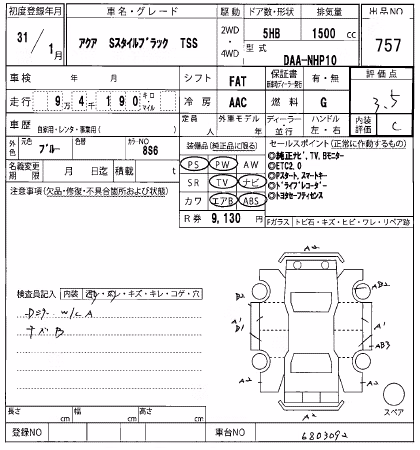 初度登録年月
31年 1月
車名・グレード
アクア Sスタイルブラック TSS
駆動
2WD
4WD
ドア数・形状
5HB
排気量
1500 cc
型式
DAA-NHP10
出品NO
757
車検 年 月
シフト FAT
保証書 有・無
評価点
3.5
走行 9万4千190 キロ・マイル
冷房 AAC
燃料 G
内装評価 C
車歴 自家用・レンタ・事業用( )
定員 人
外車モデル 年
ディーラー 並行
ハンドル 左・右
外色 元色 ブルー 色替 カラーNO 8S6
名義変更期限 月 日迄 積載 t
注意事項(欠品・修復・不具合箇所および状態)
装備品(純正品に限る)
PS PW AW
SR TV ナビ
カワ エアB ABS
R券 9,130 円
セールスポイント(正常に作動するもの)
◎純正ナビ、TV、Bモニター
◎ETC2.0
◎Pスタート、スマートキー
◎ドライブレコーダー
◎トヨタセーフティセンス
Fガラス トビ石・キズ・ヒビ・ワレ・リペア跡
検査員記入 内装 ・キズ・キレ・コゲ・穴
W/C A
A2
B2
B2
A1
B1
A1
AB3
A2
A2
スペア
長さ cm 幅 cm 高さ cm
登録NO
車台NO 6803092